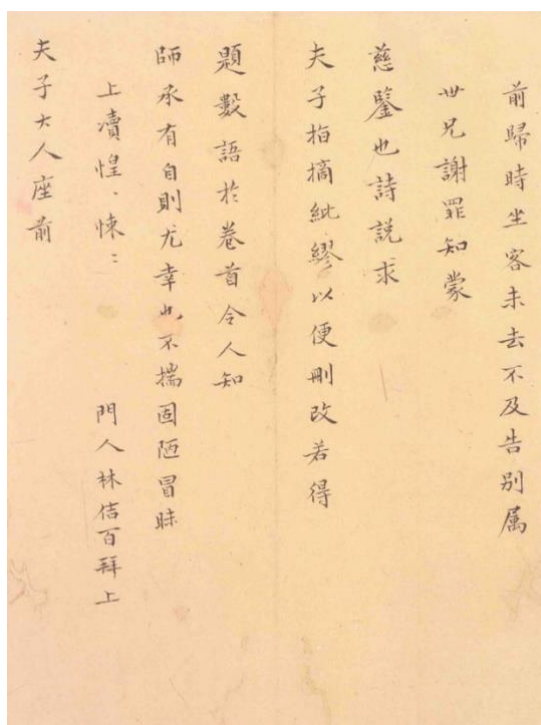 前歸時坐客未去不及告別属
世兄謝罪知蒙
慈鑒也詩説求
夫子指摘紕繆以便刪改若得
題數語於卷首令人知
師承有自則尤幸也不揣固陋冒昧
上瀆惶〻悚〻 門人林佶百拜上
夫子大人座前